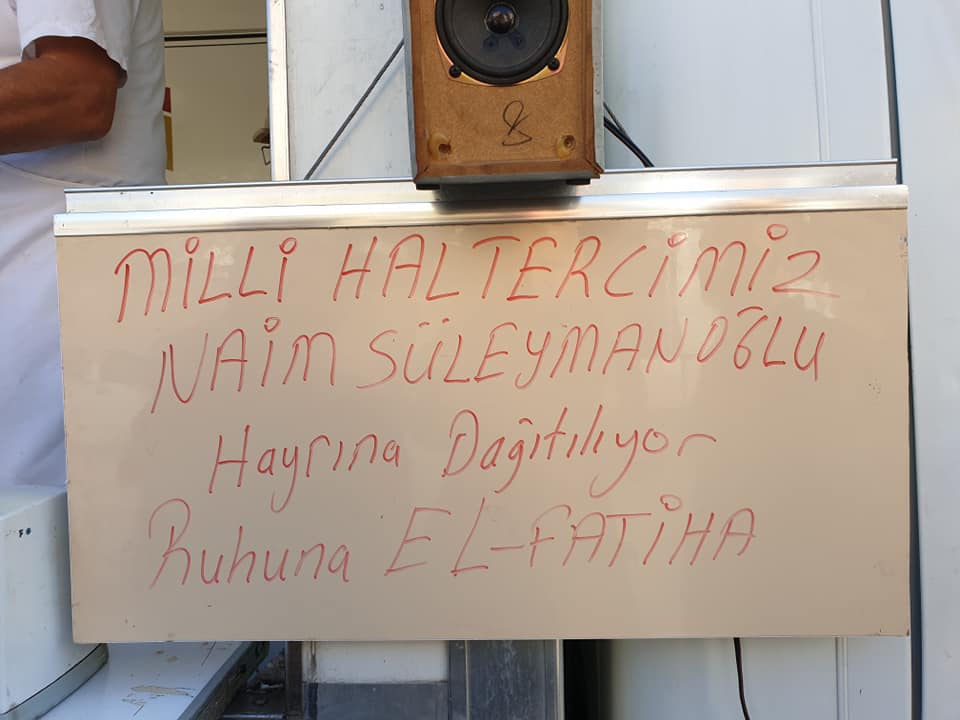 MİLLİ HALTERCİMİZ
NAİM SÜLEYMANOĞLU
Hayrına Dağıtılıyor
Ruhuna EL-FATİHA